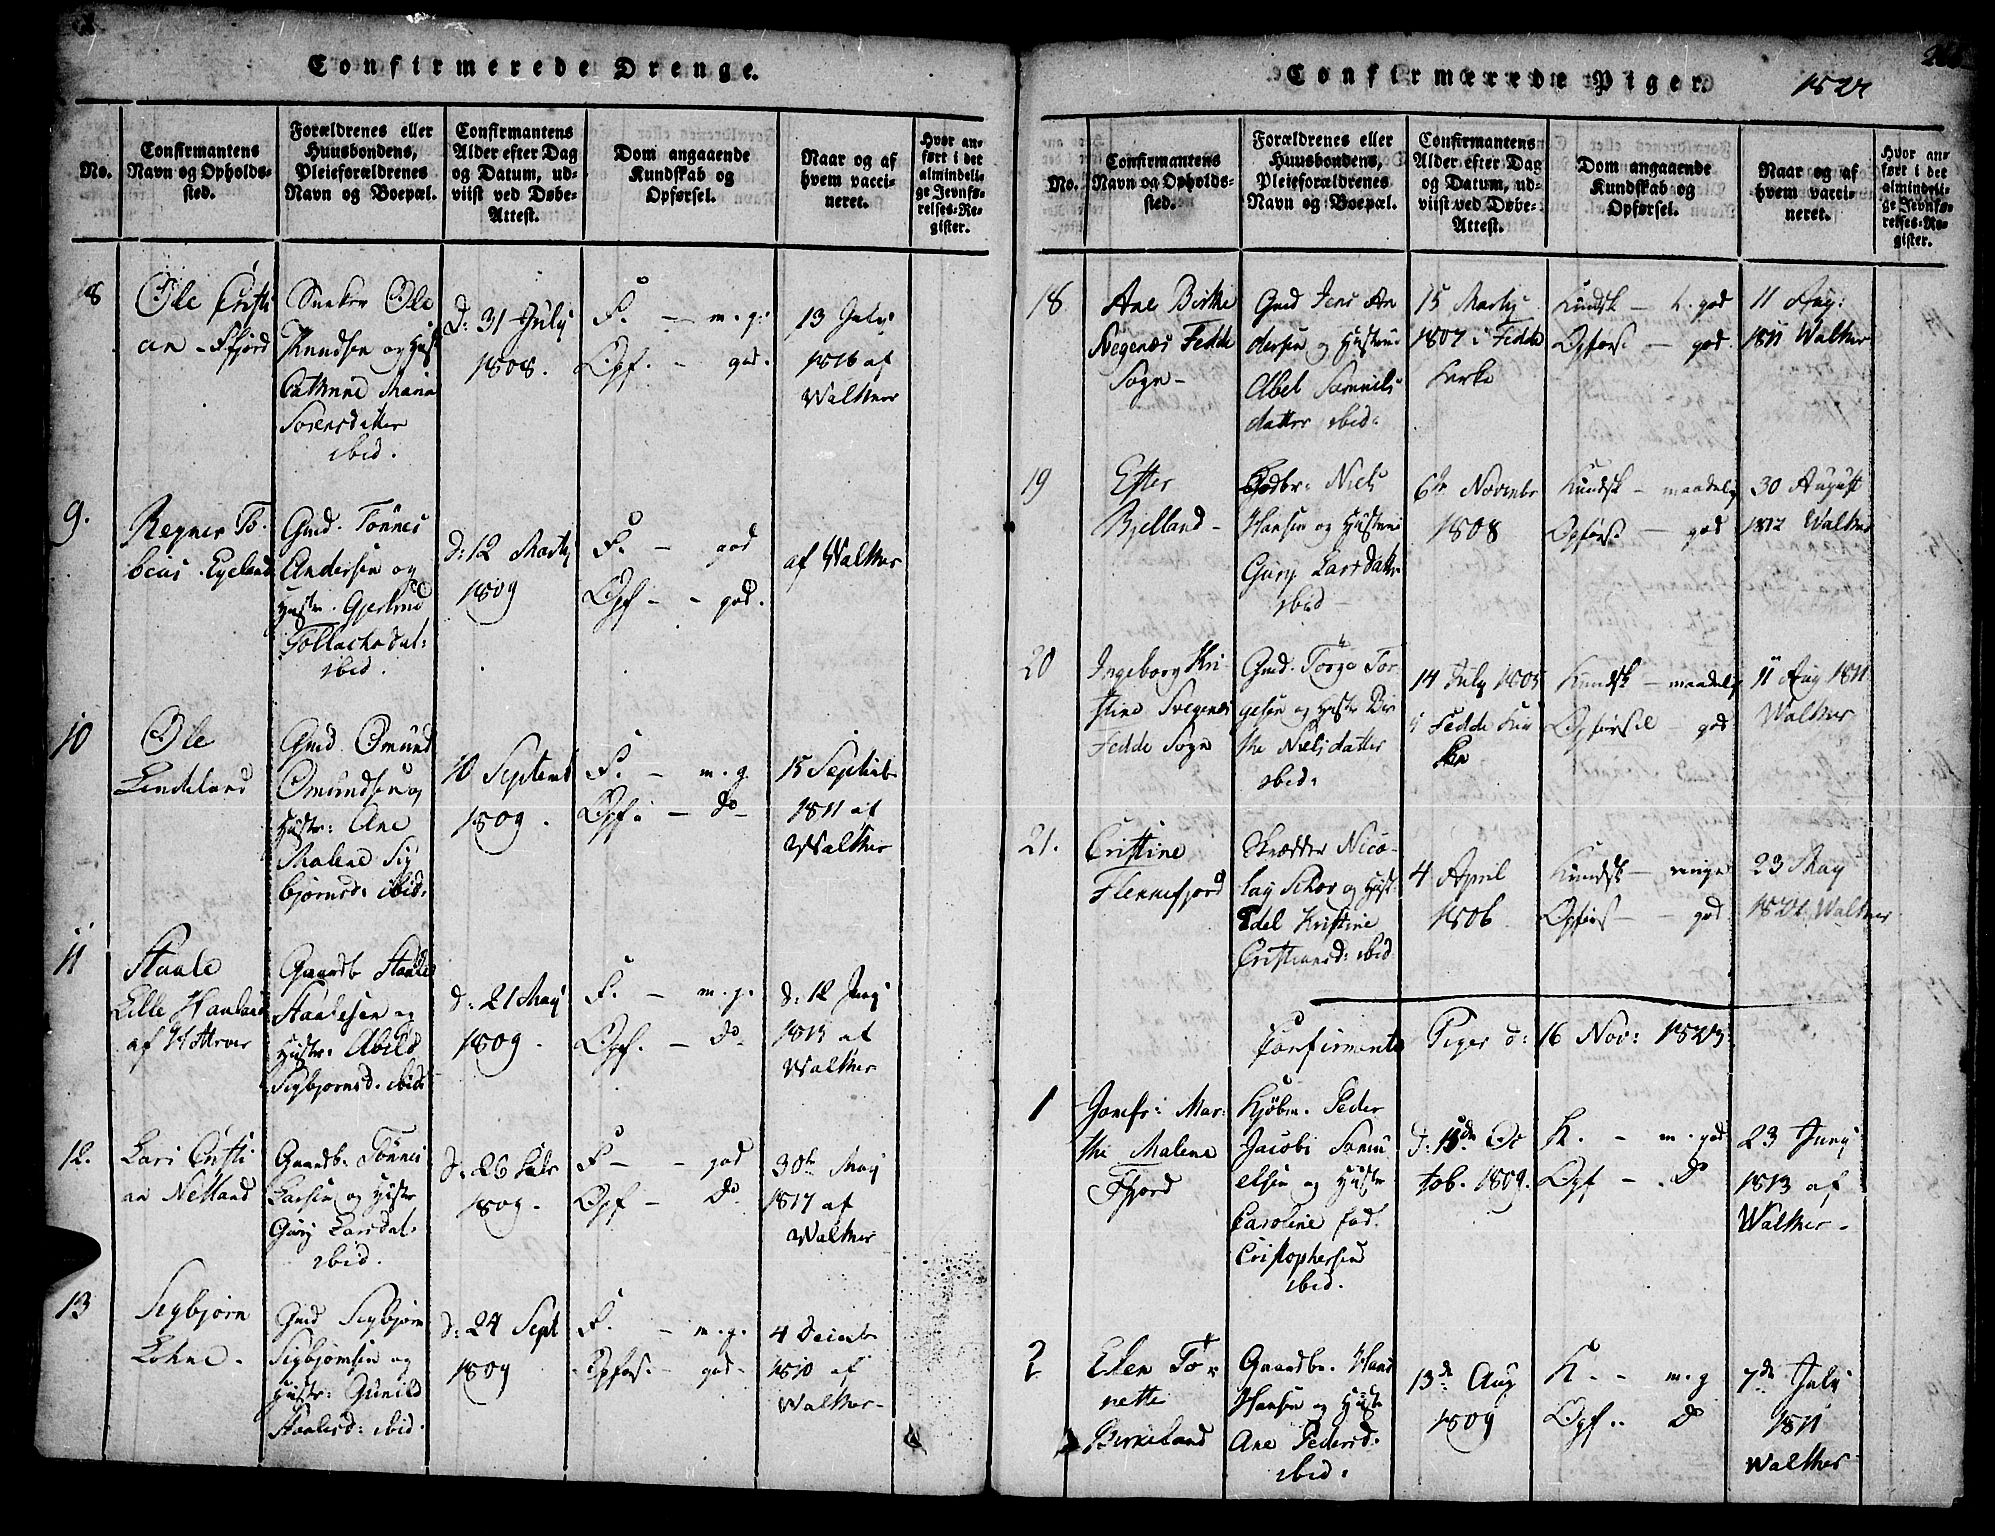 Confirmerede Drenge.
No.
Confirmantens
Navn og Opholds-
sted.
Forældrenes eller
Huusbondens,
Pleieforældrenes
Navn og Boepæl.
Confirmantens
Alder efter Dag
og Datum, ud-
viist ved Døbe-
Attest.
Dom angaaende
Kundskab og
Opførsel.
Naar og af
hvem vacci-
neret.
Hvor an-
ført i det
almindeli-
ge Jevnfø-
relses-Re-
gister.
8
Ole Cristi
an Fjord
Ole
Knudsen og Hust
Cathrine Maria
Sørensdatter
ibid.
D: 31 July
1808.
F. – m.g:
Opf. – god.
13 July
1816 af
Walther
9.
Regner To-
bias Egeland
Gmd. Tönnes
Andersen og
Hustr. Gjertrud
Tollachsdat:
ibid.
d: 12 Martz
1809
F. – god
Opf – – god.
af Walther
10
Ole
Lindeland
Gmd. Omund
Omundsen og
Hustr: Ane
Malene Sig
bjørnsd: ibid:
10 Septemb
1809.
F. – m.g
Opf: – do
15 Septemb
1811 af
Walther
11
Staale
Lille Hauland
af
Gaardb Staale
Staalesen og
Hustr: Abild
Sigbjørnsd: ibid:
d: 21 May
1809.
F. – m.g.
Opf. – do
d: 12 Juny
1815 af
Walther
12.
Lars Cristi
an Netland
Gaardb: Tönnes
Larsen og Hustr
Gury Larsdat.
ibid.
d: 26
1809.
F – – god
Opf – do
30te May
1817 af
Walther
13
Sigbjørn
Lohne.
Gmd Sigbjørn
Sigbjørnsen og
Hustr: Gunild
Staalesd: ibid.
d: 24 Sept
1809
F. – m.g.
Opførs. – god –
4 Decemb
1810 af
Walther –
Confirmerede Piger.
No.
Confirmantens
Navn og Opholds-
sted.
Forældrenes eller
Huusbondens,
Pleieforældrenes
Navn og Boepæl.
Confirmantens
Alder efter Dag
og Datum, ud-
viist ved Døbe-
Attest.
Dom angaaende
Kundskab og
Opførsel.
Naar og af
hvem vacci-
neret.
Hvor an-
ført i det
almindeli-
ge Jevnfø-
relses-Re-
gister.
18
Ane Birthe
Svegenæs Fedde
Sogn –
Gmd Jens An
dersen og Hustrue
Abel Samuels
datter ibid:
15 Martz
1807 i Fedde
Kirke
Kundsk – t. god
Opførsl – god
11 Aug:
1811 Walther
19
Ester
Bjelland –
Niels
Hansen og Hustrue
Gury Larsdatter
ibid –
6te Novembr
1808
Kundsk – maadelig
Opførsl – god
30 August
1812 Walther
20
Ingeborg Kri-
stine Svegenæs
Fedde Sogn
Gmd. Törge Tor-
gesen og Hustr Bir
the Nielsdatter
ibid:
14 July 1805
i Fedde Kir
ken
Kundsk – maadelig
Opførsel – god
11 Aug 1811
Walther
21.
Cristine
Flennefjord
Skrædder Nico-
lay og Hust
Edel Kristine
Cristiansd: ibid
4 April
1806
Kundsk – ringe
Opførsl – god
23 May
Walther
Confirmante Piger d: 16 Nov:
1
Jomfr: Mar:
the Malene
Fjord
Kjøbm. Peder
Jacobi Samu
elsen og Hustr
Caroline fød.
Cristophersen
ibid.
d: 15de Oc
tob. 1809.
K. – m. god
Opf – do
23 Juny
1813 af
Walther –
2
Elen Tö-
nette
Birkeland
Gaardbr. Hans
Hansen og Hustr
Ane Pedersd:
ibid.
13de Aug
1809
K. – – m.g
Opf.. do
7de July
1811
Walther